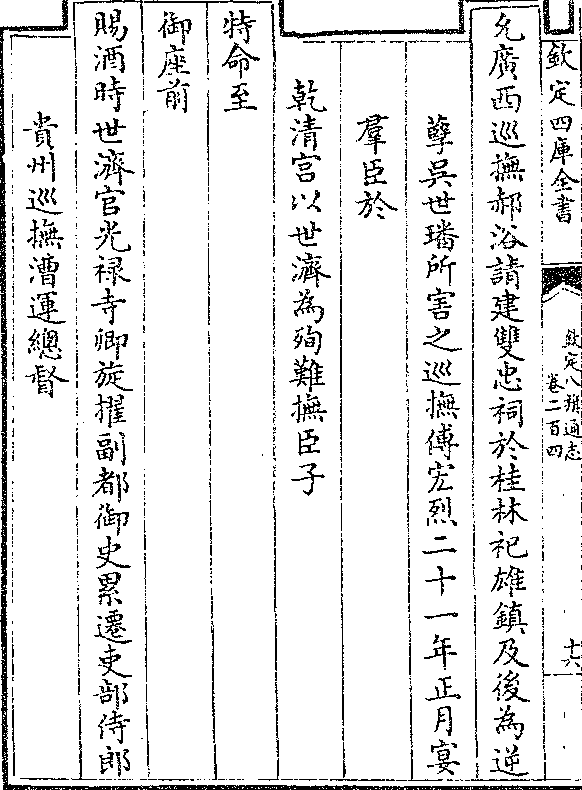 欽定四庫全書
欽定八旗通志
卷二百四
十六
允廣西巡撫郝浴請建雙忠祠於桂林祀雄鎮及後為逆
孽吳世璠所害之巡撫傅宏烈二十一年正月宴
羣臣於
乾清宫以世濟為殉難撫臣子
特命至
御座前
賜酒時世濟官光禄寺卿旋擢副都御史累遷吏部侍郎
貴州巡撫漕運總督